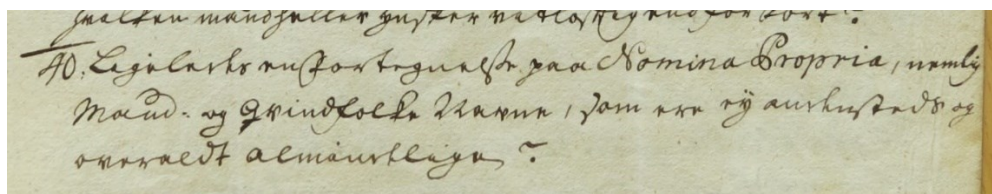 hvalken mandheller
40. Ligeledes en Fortegnelse paa Nomina Propria, nemlig
Mand- og Qvindfolke Navne, som ere ey andensteds og
overaldt almindelige?